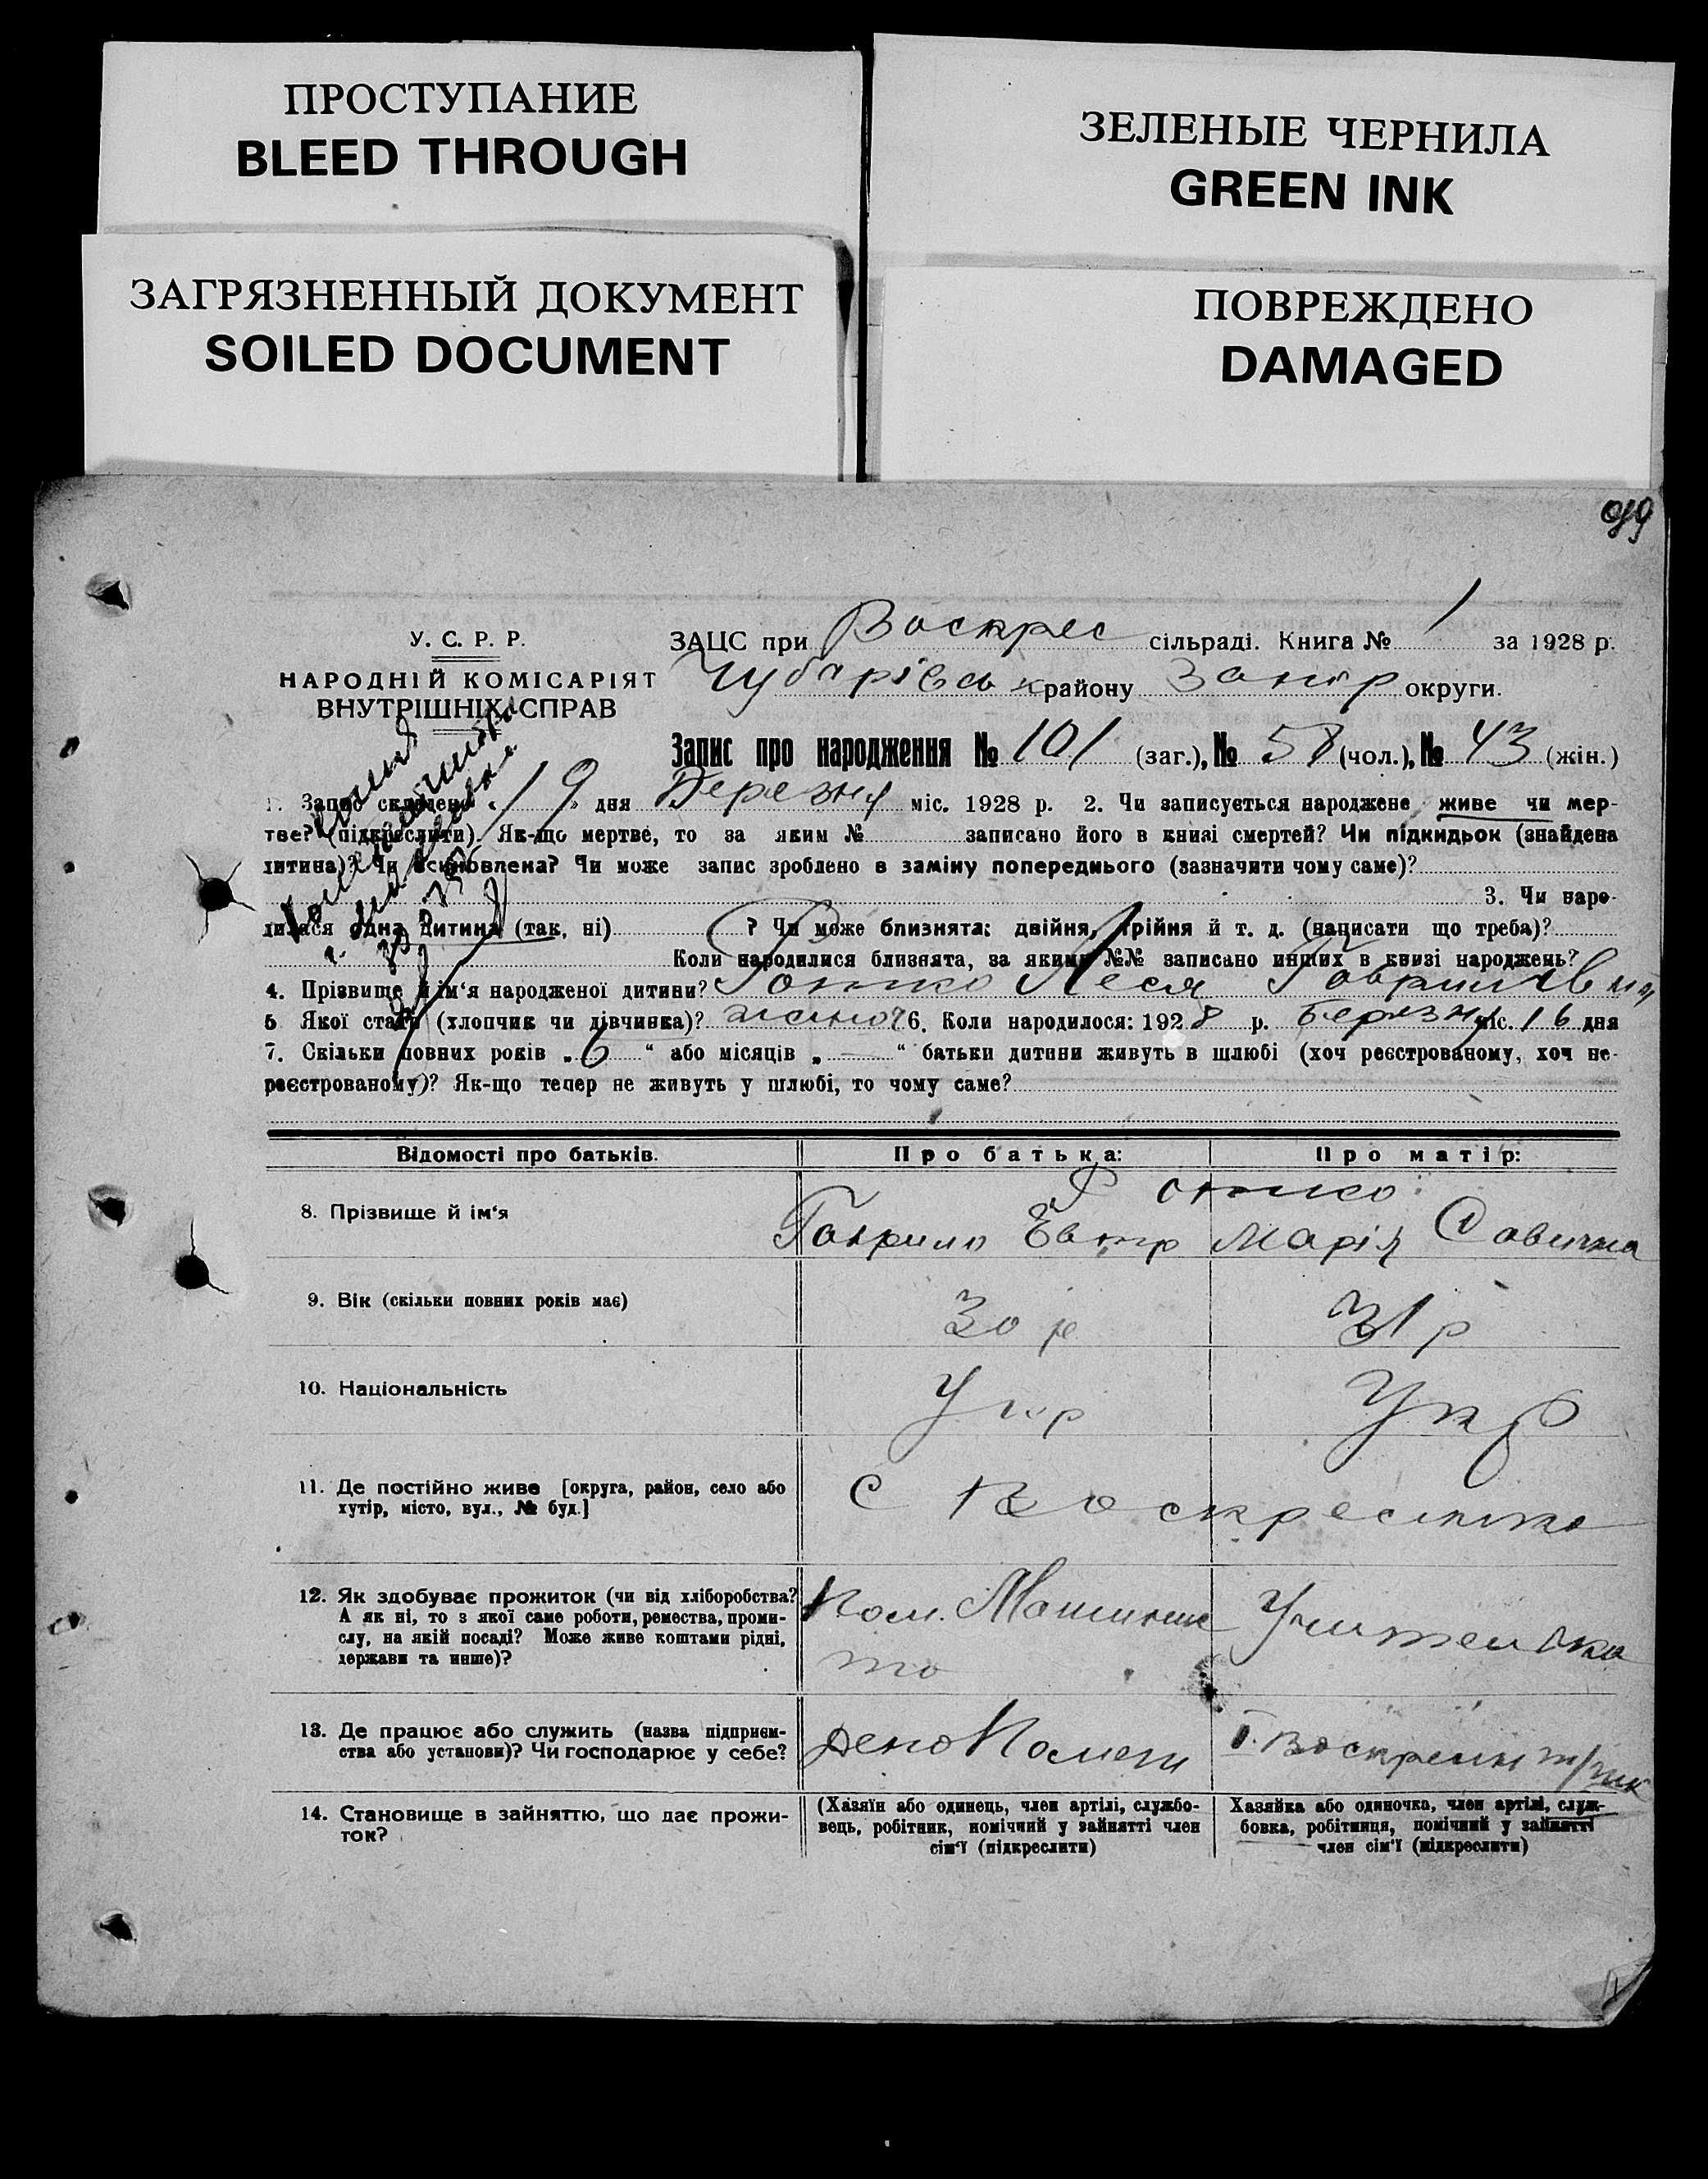 ПРОСТУПАНИЕ
BLEED THROUGH
ЗЕЛЕНЫЕ ЧЕРНИЛА
GREEN INK
ЗАГРЯЗНЕННЫЙ ДОКУМЕНТ
SOILED DOCUMENT
ПОВРЕЖДЕНО
DAMAGED
У. С. Р. Р.
НАРОДНІЙ КОМІСАРІЯТ
ВНУТРІШНІХ СПРАВ
ЗАЦС при Воскрес сільраді. Книга № 1 за 1928 р.
Чубарівськ району Запор округи.
Запис про народження № 101 (заг.), № 58 (чол.), № 43 (жін.)
1. Запис складено „19" дня Березня міс. 1928 р. 2. Чи записується народжене живе чи мер-
тве? (підкреслити). Як-що мертве, то за яким № записано його в книзі смертей? Чи підкидьок (знайдена
дитина)? Чи всиновлена? Чи може запис зроблено в заміну попереднього (зазначити чому саме)?
3. Чи наро-
дилася одна дитина (так, ні) ? Чи може близнята: двійня, трійня й т. д. (написати що треба)?
Коли народилися близнята, за якими №№ записано инших в книзі народжень?
4. Прізвище й ім'я народженої дитини? Леся Гаврилівна
5 Якої статі (хлопчик чи дівчинка)? жіноч 6. Коли народилося: 1928 р. березня міс. 16 дня
7. Скільки повних років „6" або місяців „—" батьки дитини живуть в шлюбі (хоч реєстрованому, хоч не-
реєстрованому)? Як-що тепер не живуть у шлюбі, то чому саме?
Відомості про батьків. Про батька: Про матір:
8. Прізвище й ім'я
Гаврило Марія Савична
9. Вік (скільки повних років має) 30 р 31 р
10. Національність Укр Укр
11. Де постійно живе [округа, район, село або
хутір, місто, вул., № буд.]
с Воскресенка
12. Як здобуває прожиток (чи від хліборобства?
А як ні, то з якої саме роботи, ремества, проми-
слу, на якій посаді? Може живе коштами рідні,
держави та инше)?
Пом. Машиніс
та
Учителька
13. Де працює або служить (назва підприєм-
ства або установи)? Чи господарює у себе?
Депо Пологи
14. Становище в зайняттю, що дає прожи-
ток?
(Хазяїн або одинець, член артілі, службо-
вець, робітник, помічний у зайнятті член
сім'ї (підкреслити)
Хазяйка або одиночка, член артілі, служ-
бовка, робітниця, помічний у зайнятті
член сім'ї (підкреслити)